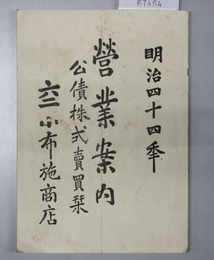 明治四十四年
營業案内
公債株式賣買栞
小布施商店
67484